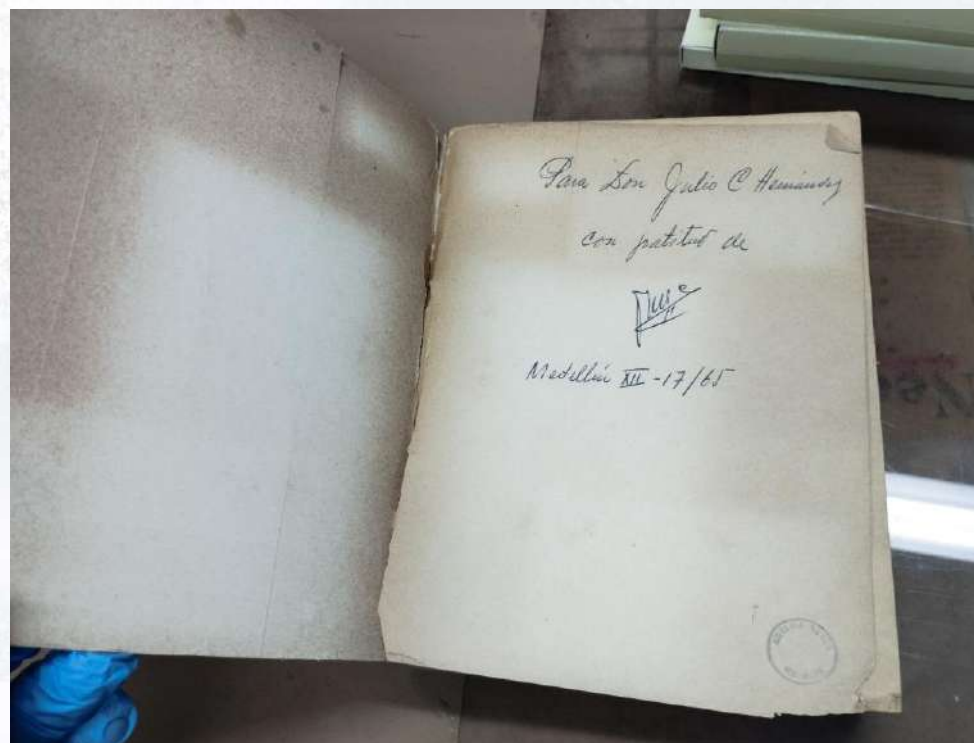 Para Don Julio C Hernández
con gratitud de
Medellín XII-17/65